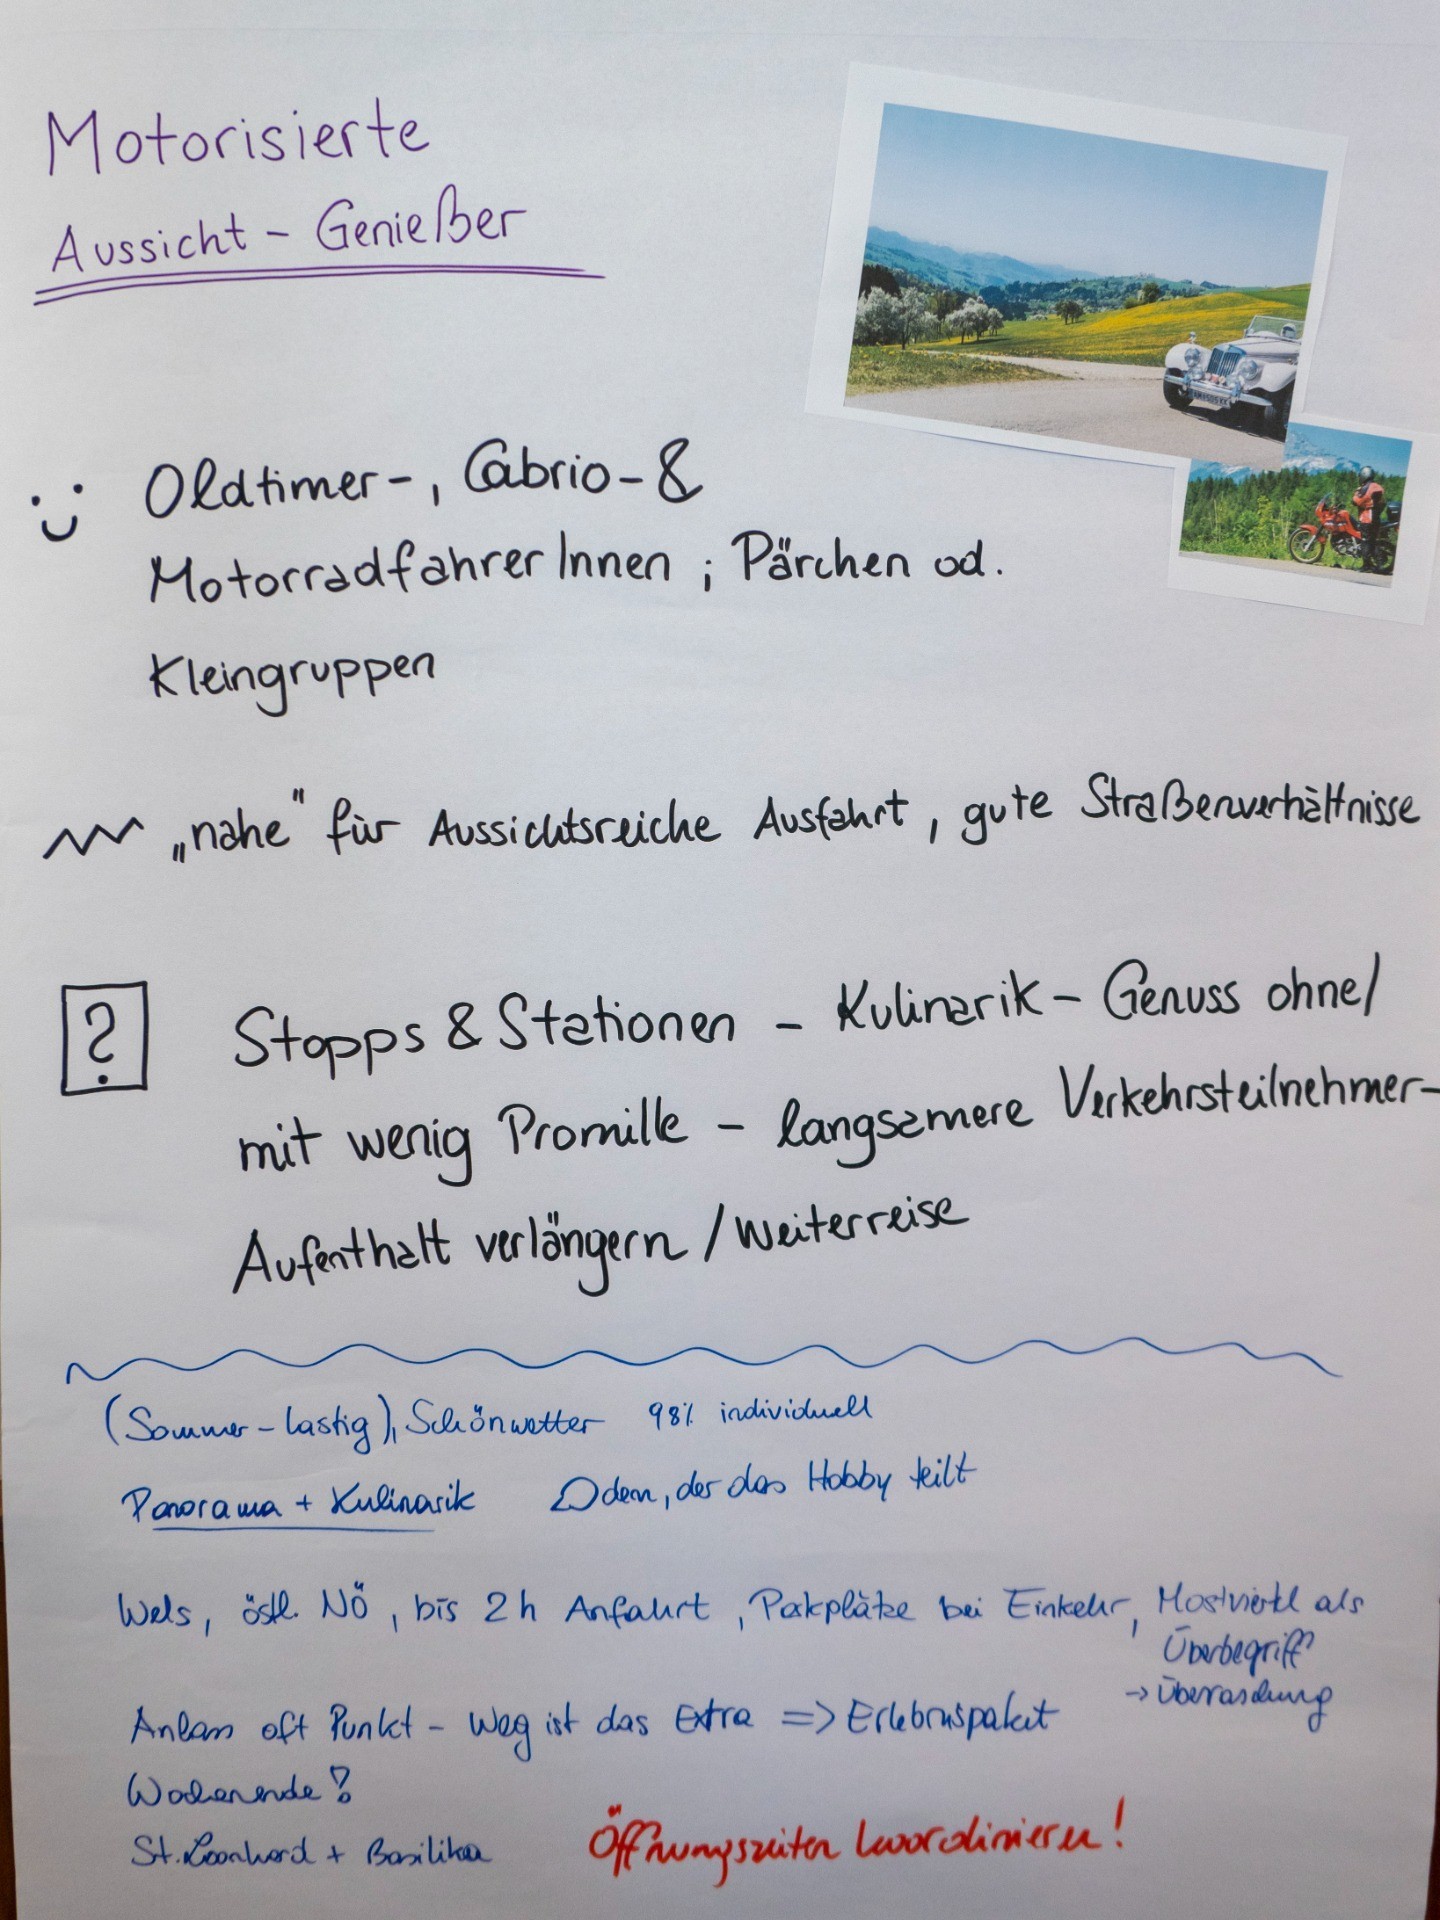 Motorisierte
Aussicht - Genießer
Oldtimer-, Cabrio- &
MotorradfahrerInnen ; Pärchen od.
Kleingruppen
„nahe" für Aussichtsreiche Ausfahrt, gute Straßenverhältnisse
?
Stopps & Stationen - Kulinarik - Genuss ohne/
mit wenig Promille - langsamere Verkehrsteilnehmer -
Aufenthalt verlängern / Weiterreise
(Sommer-lastig), Schönwetter 98% individuell
Panorama + Kulinarik dem, der das Hobby teilt
Wels, östl. NÖ, bis 2h Anfahrt, Parkplätze bei Einkehr, Mostviertel als
Überbegriff
-> Überraschung
Anlass oft Punkt - Weg ist das Extra => Erlebnispaket
Wochenende?
St. Leonhard + Basilika
Öffnungszeiten koordinieren!